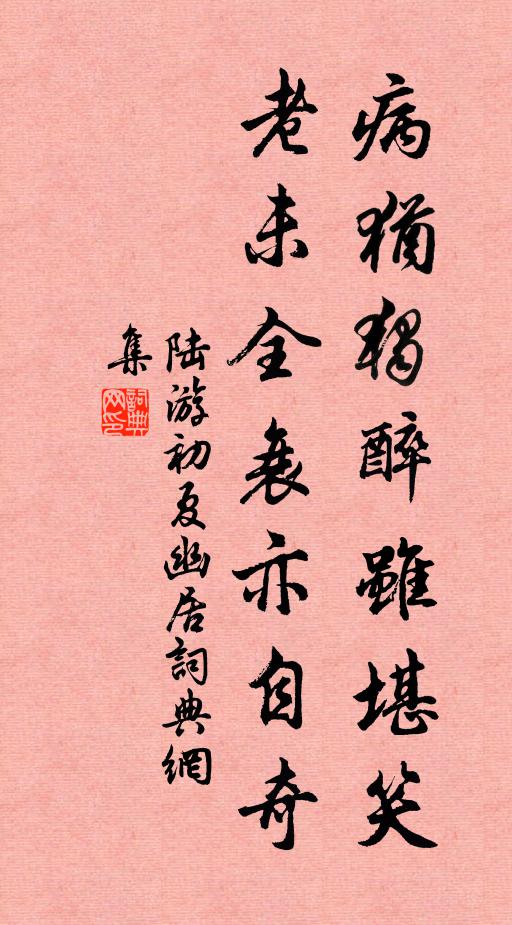 病猶獨醉雖堪笑
老未全衰亦自奇
陆游初夏幽居詞典網
集
詞典
网印